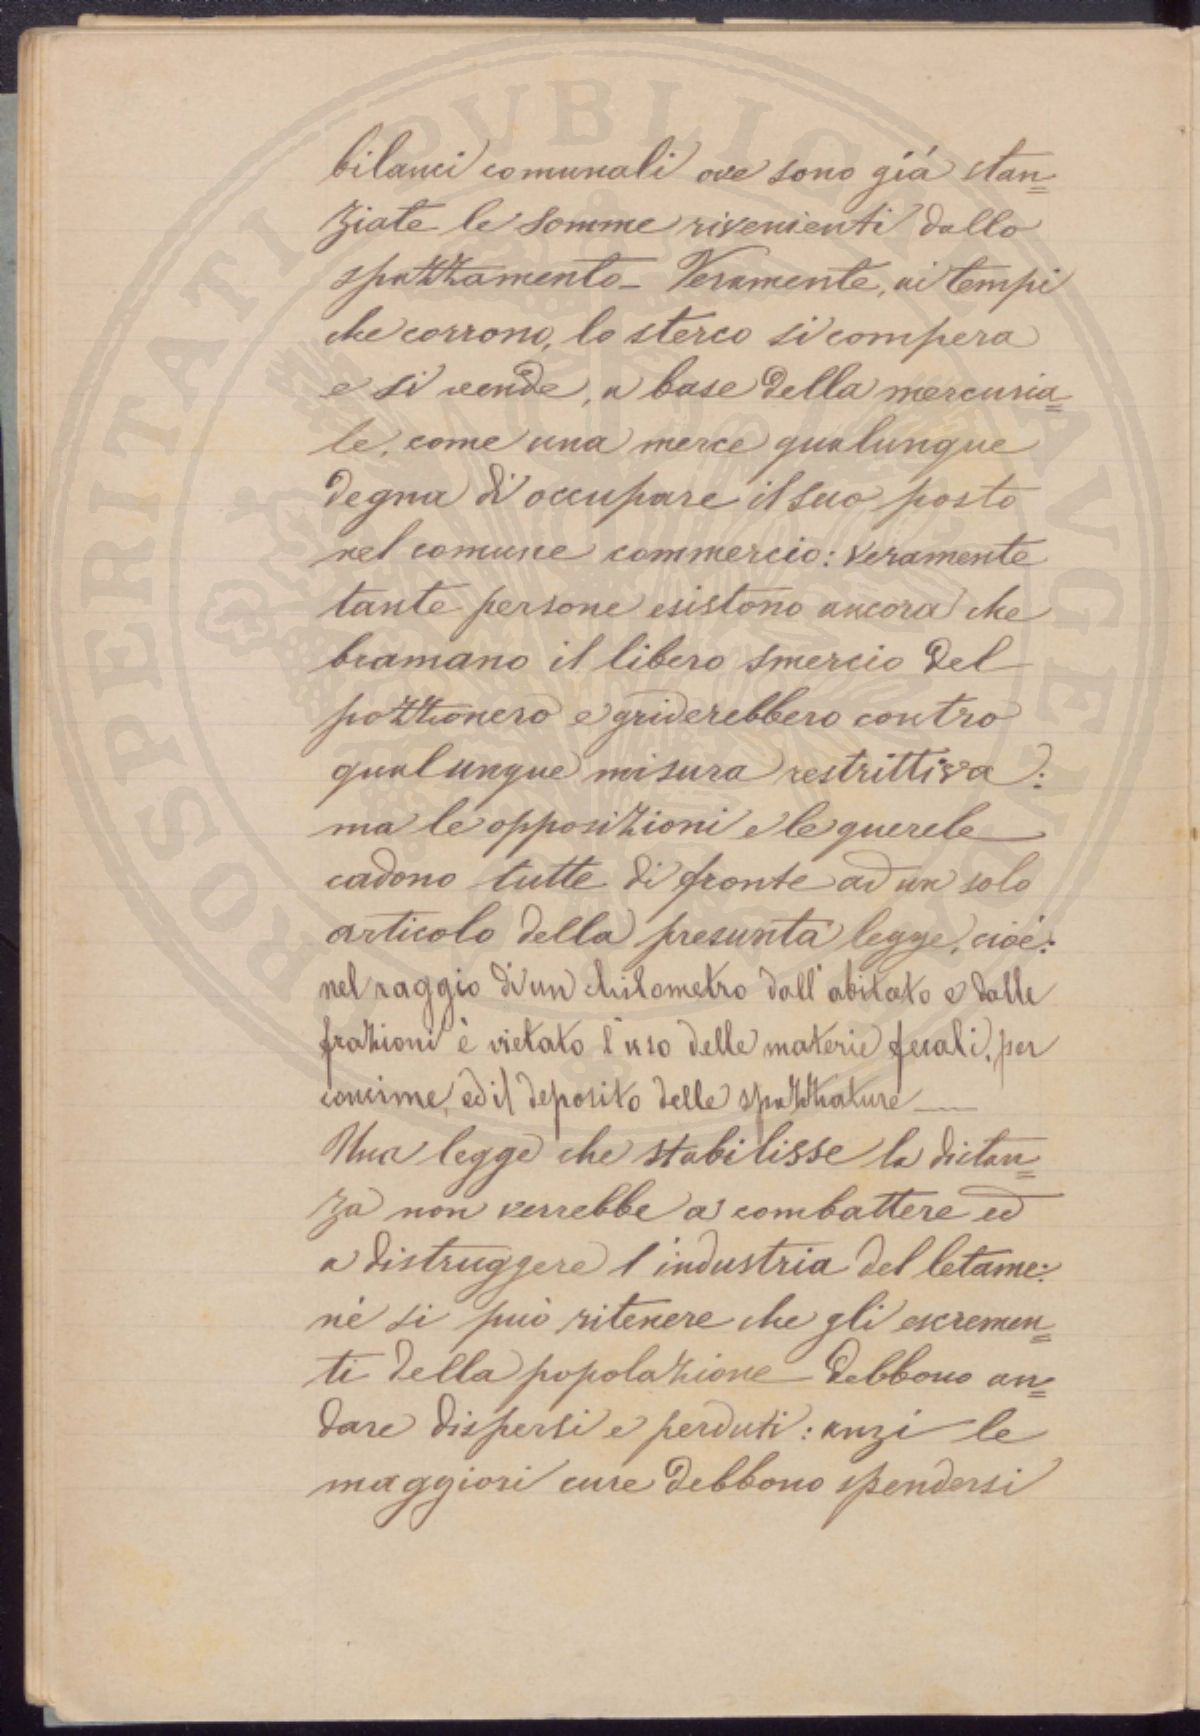 bilanci comunali ove sono già stan=
ziate le somme rivenienti dallo
spazzamento_ Veramente, ai tempi
che corrono, lo sterco si compera
e si vende, a base della mercuria=
le, come una merce qualunque
degna di occupare il suo posto
nel comune commercio: veramente
tante persone esistono ancora che
bramano il libero smercio del
pozzonero e griderebbero contro
qualunque misura restrittiva:
ma le opposizioni e le querele
cadono tutte di fronte ad un solo
articolo della presunta legge, cioè:
nel raggio di un chilometro dall'abitato e dalle
frazioni è vietato l'uso delle materie fecali, per
concime, ed il deposito delle spazzature __
Una legge che stabilisse la distan=
za non verrebbe a combattere ed
a distruggere l'industria del letame:
nè si può ritenere che gli escremen=
ti della popolazione debbono an=
dare dispersi e perduti: anzi le
maggiori cure debbono spendersi
PROSPERITATI PUBLICAE AUGENDAE